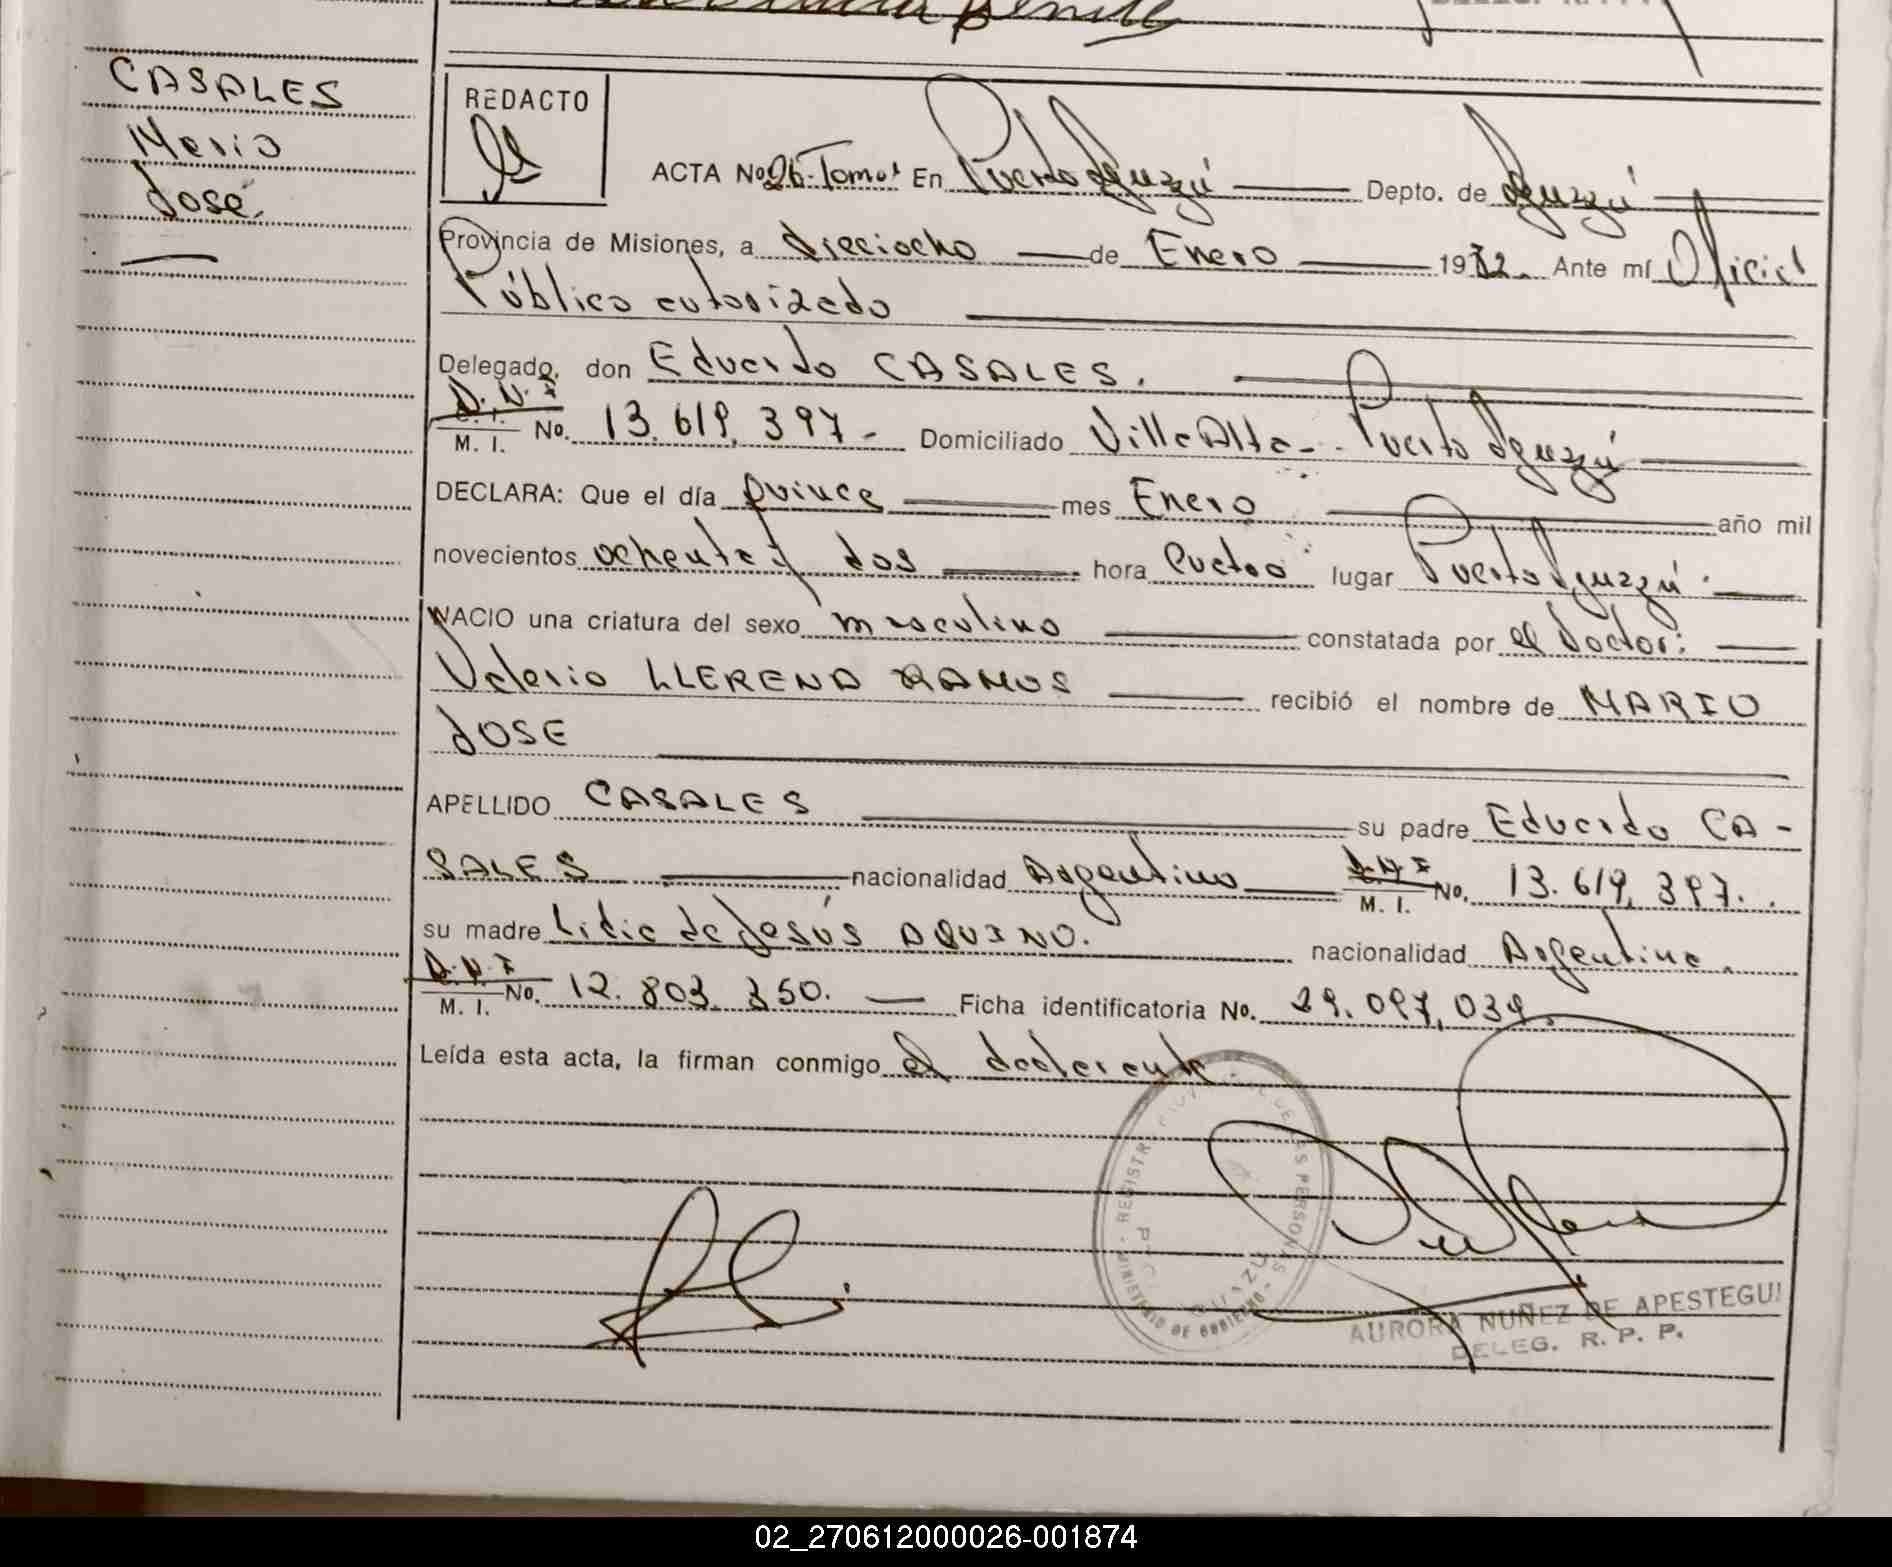 CASALES
Mario
José.
REDACTO
ACTA No. 26-Tomo 1 En Puerto Iguazú Depto. de Iguazú
Provincia de Misiones, a dieciocho de Enero 1982. Ante mí Oficial
Público autorizado
Delegado, don Eduardo CASALES.
D.N.I
M. I. No. 13.619.397- Domiciliado Villa Alta - Puerto Iguazú
DECLARA: Que el día quince mes Enero año mil
novecientos ochenta y dos hora cuatro lugar Puerto Iguazú.
NACIO una criatura del sexo masculino constatada por el Doctor:
Valerio LLERENA RAMOS recibió el nombre de MARIO
JOSE
APELLIDO CASALES su padre Eduardo CA-
SALES nacionalidad Argentino D.N.I M. I. No. 13.619.397.
su madre Lidia de Jesús AQUINO. nacionalidad Argentina.
D.N.I
M. I. No. 12.803.350. Ficha identificatoria No. 29.097.039.
Leída esta acta, la firman conmigo el declarante.
REGISTRO DE LAS PERSONAS
MINISTERIO DE GOBIERNO
AURORA NUÑEZ DE APESTEGUI
DELEG. R. P. P.
02_270612000026-001874